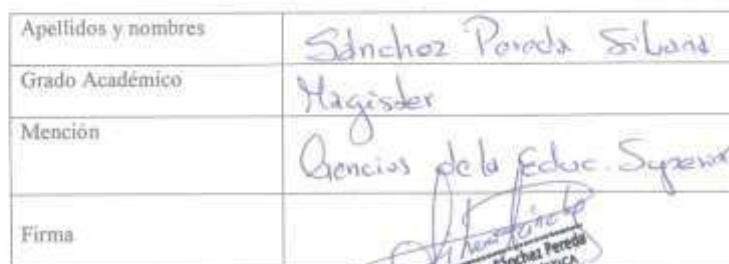 Apellidos y nombres Sánchez Pereda Silvana
Grado Académico Magister
Mención Ciencias de la Educ. Superior
Firma
Sánchez Pereda